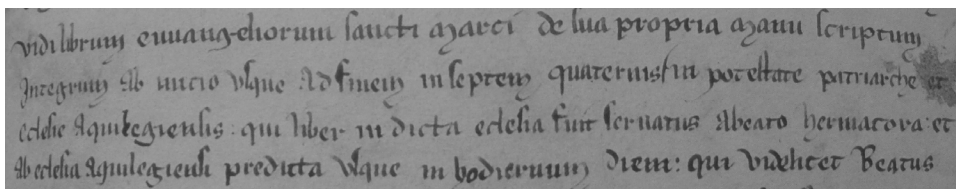 vidi librum euuangeliorum sancti marci de sua propria manu scriptum
Integrum ab inicio usque ad finem in septem quaternis in potestate patriarche et
eclesie aquilegiensis: qui liber in dicta eclesia fuit servatus abeato hermacora: et
ab eclesia aquilegiensi predicta usque in hodiernum diem: qui videlicet Beatus